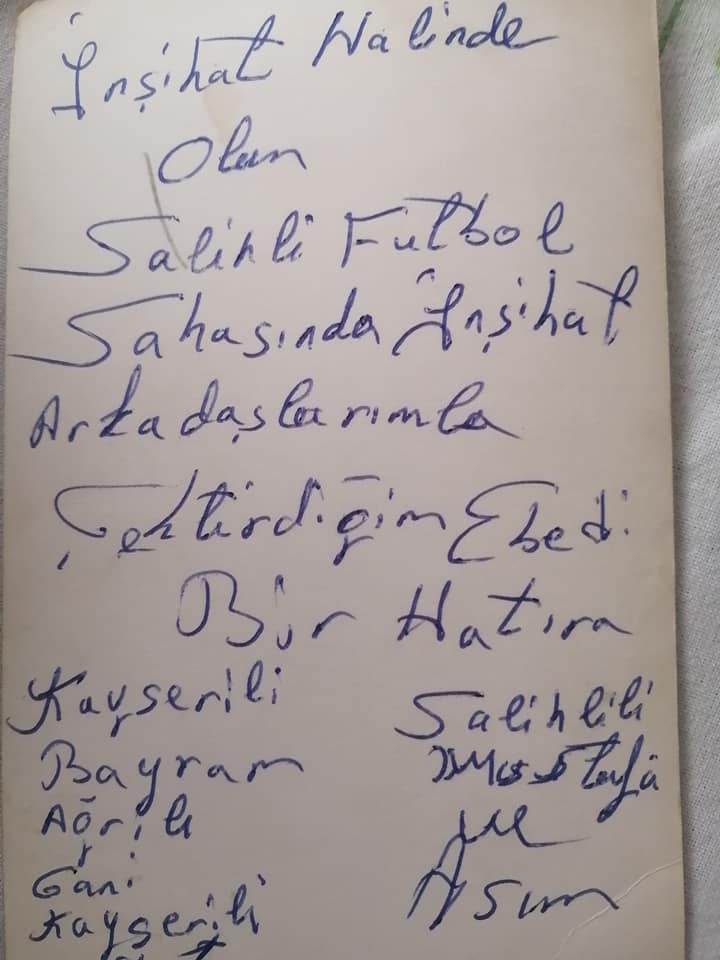 İnşihat Halinde
Olan
Salihli Futbol
Sahasında İnşihat
Arkadaşlarımla
Çektirdiğim Ebedi
Bir Hatıra
Kayserili
Bayram
Ağrılı
Gani
Kayserili
Salihlili
Mustafa
ve
Asım